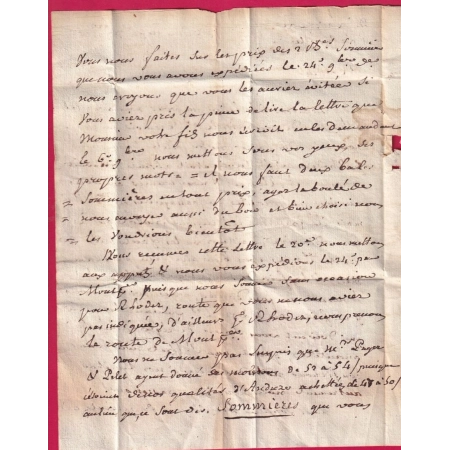 Vous nous faites sur les prix des 2 Bas Sommieres
que nous vous avons expédiées le 24e 9bre
nous croyons que vous les auriez évitée si
Vous aviez pris la peine de lire la lettre que
Monsieur votre fils nous écrivit en les demandant
le 6e 9bre nous mettons sous vos yeux ses
propres mots = il nous faut deux balles
= Sommières en tout prix, ayez la bonté de
= nous envoyer aussi du bon et bien choisi nous
= les vendrions bientôt
Nous recumes cette lettre le 20e nous mettons
aux & nous vous expédions le 24e par
Montp. puisque nous sommes sans occasion
pour Rhodez, route que vous ne nous aviez
pas indiquée, d'ailleurs pr Rhodez, nous prenons
la route de Montp.
Nous ne sommes pas surpris que Mrs
& Pelet ayent donné de 50 à 54/
qualités d'Anduze achettés de 48 à 50/
au lieu que ce sont des Sommieres que vous